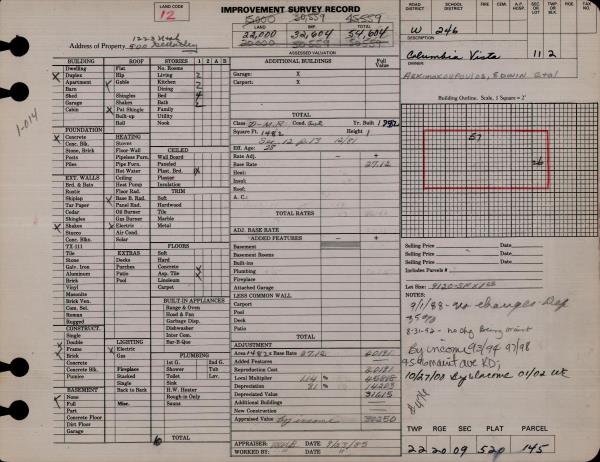 LAND CODE
12
IMPROVEMENT SURVEY RECORD
15000 30,559 45559
LAND IMP. TOTAL
22,000 32,604 54,604
20000 30559
ASSESSED VALUATION
1223
Address of Property 500
ROAD DISTRICT SCHOOL DISTRICT FIRE CEM. A.P. HOSP. SEC. OR LOT TAX NO.
W 246
DESCRIPTION
Columbia Vista 11 2
SEC. OR LOT TWP. OR BLK
1-014
BUILDING
Dwelling
Duplex
Apartment
Barn
Shed
Garage
Cabin
FOUNDATION
Concrete
Conc. Blk.
Stone, Brick
Posts
Piles
EXT. WALLS
Brd. & Bats
Rustic
Shiplap
Tar Paper
Cedar
Shingles
Shakes
Stucco
Conc. Blks.
TX-111
Tile
Stone
Galv. Iron
Aluminum
Brick
Vinyl
Masonite
Brick Ven.
Com. Sel.
Roman
Rugged
CONSTRUCT.
Single
Double
Frame
Brick
Concrete
Concrete Blk.
Pumice
BASEMENT
None
Full
Part
Concrete Floor
Dirt Floor
Garage
ROOF
Flat
Hip
Gable
Shingles
Shakes
Pat Shingle
Built-up
Roll
HEATING
Stoves
Floor-Wall
Pipeless Furn.
Pipe Furn.
Hot Water
Ceiling
Heat Pump
Floor Rad.
Base B. Rad.
Panel Rad.
Oil Burner
Gas Burner
Electric
Air Cond.
Solar
EXTRAS
Decks
Porches
Patio
LIGHTING
Electric
Gas
Fireplace
Stacked
Single
Back to Back
Misc.
STORIES 1 2 A B
No. Rooms
Living 2
Kitchen 2
Dining 2
Bed 4
Bath 2
Family
Utility
Nook
CEILED
Wall Board
Paneled
Plast. Brd.
Plaster
Insulation
TRIM
Soft
Hardwood
Tile
Marble
Metal
FLOORS
Soft
Hard
Concrete
Asp. Tile
Linoleum
Carpet
BUILT-IN APPLIANCES
Range & Oven
Hood & Fan
Garbage Disp.
Dishwasher
Inter Com.
Bar-B-Que
PLUMBING
1st G. 2nd G.
Shower Tub
Toilet Lav.
Sink
H.W. Heater
Rough-in Only
Sauna
6 TOTAL
ADDITIONAL BUILDINGS Full Value
Garage: X
Carport: X
TOTAL
Class D-M.R. Cond. Yr. Built 1982
Square Ft. 1482 Height 1
Eff. Age: 25
Rate Adj. — +
Base Rate 27.12
Heat:
Insul:
Roof:
A. C.:
TOTAL RATES
ADJ. BASE RATE
ADDED FEATURES — +
Basement
Basement Rooms
Built-ins
Plumbing
Fireplace
Attached Garage
LESS COMMON WALL
Carport
Pool
Deck
Patio
TOTAL
ADJUSTMENT
Area 1482 x Base Rate 27.12 40191
Added Features
Reproduction Cost 40191
Local Multiplier 1.14 %
Depreciation 31 % 14203
Depreciated Value 31615
Additional Buildings — +
New Construction — +
Appraised Value by income 30250
APPRAISER: DATE
WORKED BY: DATE
Building Outline. Scale, 1 Square = 2'
57
26
Selling Price Date
Selling Price Date
Selling Price Date
Includes Parcels #
Lot Size:
NOTES:
9/1/88 - no changes
8-31-92 - no chg
By income 93/94 97/98
10/27/00 By Income 01/02
TWP RGE SEC PLAT PARCEL
22 20 09 520 145